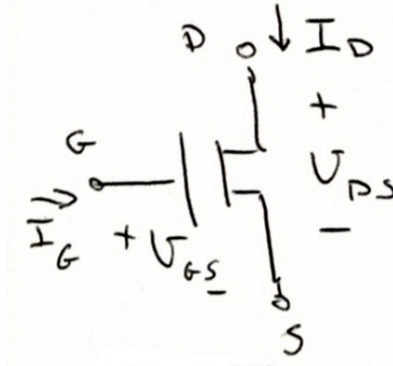 D I_D
+
G
V_DS
I_G + V_GS -
-
S